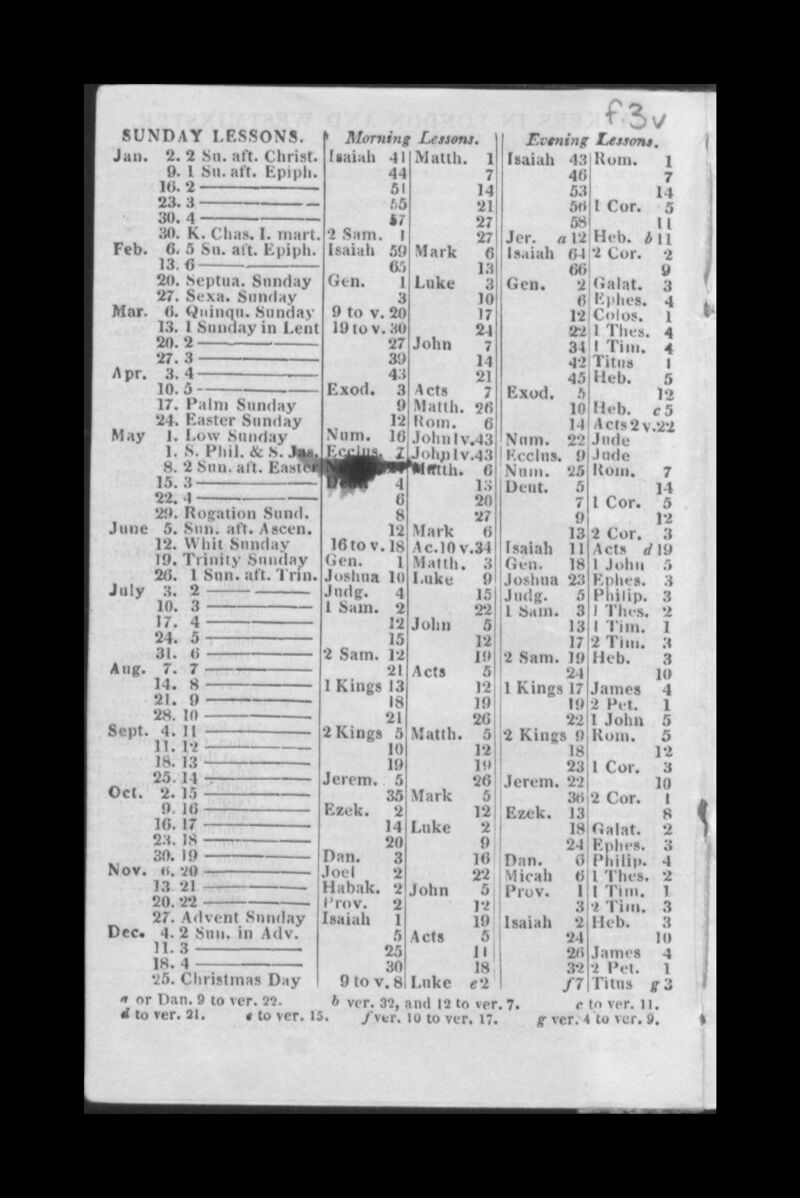 f.3v
SUNDAY LESSONS. Morning Lessons. Evening Lessons.
Jan. 2. 2 Su. aft. Christ. Isaiah 41 Matth. 1 Isaiah 43 Rom. 1
9. 1 Su. aft. Epiph. 44 7 46 7
16. 2 51 14 53 14
23. 3 55 21 56 1 Cor. 5
30. 4 57 27 58 11
30. K. Chas. I. mart. 2 Sam. 1 27 Jer. a 12 Heb. b 11
Feb. 6. 5 Su. aft. Epiph. Isaiah 59 Mark 6 Isaiah 64 2 Cor. 2
13. 6 65 13 66 9
20. Septua. Sunday Gen. 1 Luke 3 Gen. 2 Galat. 3
27. Sexa. Sunday 3 10 6 Ephes. 4
Mar. 6. Quinqu. Sunday 9 to v. 20 17 12 Colos. 1
13. 1 Sunday in Lent 19 to v. 30 24 22 1 Thes. 4
20. 2 27 John 7 34 1 Tim. 4
27. 3 39 14 42 Titus 1
Apr. 3. 4 43 21 45 Heb. 5
10. 5 Exod. 3 Acts 7 Exod. 5 12
17. Palm Sunday 9 Matth. 26 10 Heb. c 5
24. Easter Sunday 12 Rom. 6 14 Acts 2 v.22
May 1. Low Sunday Num. 16 John 1 v.43 Num. 22 Jude
1. S. Phil. & S. Jas. Ecclus. 7 John 1 v.43 Ecclus. 9 Jude
8. 2 Sun. aft. Easter Matth. 6 Num. 25 Rom. 7
15. 3 Deut. 4 13 Deut. 5 14
22. 4 6 20 7 1 Cor. 5
29. Rogation Sund. 8 27 9 12
June 5. Sun. aft. Ascen. 12 Mark 6 13 2 Cor. 3
12. Whit Sunday 16 to v. 18 Ac. 10 v.34 Isaiah 11 Acts d 19
19. Trinity Sunday Gen. 1 Matth. 3 Gen. 18 1 John 5
26. 1 Sun. aft. Trin. Joshua 10 Luke 9 Joshua 23 Ephes. 3
July 3. 2 Judg. 4 15 Judg. 5 Philip. 3
10. 3 1 Sam. 2 22 1 Sam. 3 1 Thes. 2
17. 4 12 John 5 13 1 Tim. 1
24. 5 15 12 17 2 Tim. 3
31. 6 2 Sam. 12 19 2 Sam. 19 Heb. 3
Aug. 7. 7 21 Acts 5 24 10
14. 8 1 Kings 13 12 1 Kings 17 James 4
21. 9 18 19 19 2 Pet. 1
28. 10 21 26 22 1 John 5
Sept. 4. 11 2 Kings 5 Matth. 5 2 Kings 9 Rom. 5
11. 12 10 12 18 12
18. 13 19 19 23 1 Cor. 3
25. 14 Jerem. 5 26 Jerem. 22 10
Oct. 2. 15 35 Mark 5 36 2 Cor. 1
9. 16 Ezek. 2 12 Ezek. 13 8
16. 17 14 Luke 2 18 Galat. 2
23. 18 20 9 24 Ephes. 3
30. 19 Dan. 3 16 Dan. 6 Philip. 4
Nov. 6. 20 Joel 2 22 Micah 6 1 Thes. 2
13 21 Habak. 2 John 5 Prov. 1 1 Tim. 1
20. 22 Prov. 2 12 3 2 Tim. 3
27. Advent Sunday Isaiah 1 19 Isaiah 2 Heb. 3
Dec. 4. 2 Sun. in Adv. 5 Acts 5 24 10
11. 3 25 11 26 James 4
18. 4 30 18 32 2 Pet. 1
25. Christmas Day 9 to v. 8 Luke e2 f7 Titus g 3
a or Dan. 9 to ver. 22. b ver. 32, and 12 to ver. 7. c to ver. 11.
d to ver. 21. e to ver. 15. f ver. 10 to ver. 17. g ver. 4 to ver. 9.